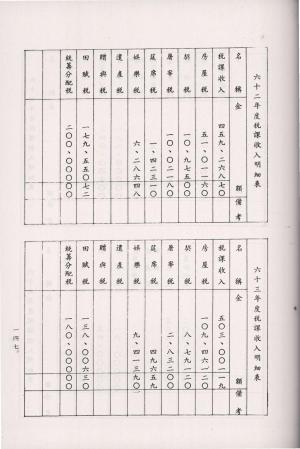 六十二年度稅課收入明細表
名稱 金額 備考
稅課收入 四五九、二六八七〇
房屋稅 五一、〇一一六〇
契稅 一〇、九七五〇〇
屠宰稅 一〇、〇二一八〇
筵席稅 一、四二三一〇
娛樂稅 六、二八六四八
遺產稅
贈與稅
田賦稅 一七九、五五〇七二
統籌分配稅 二〇〇、〇〇〇〇〇
六十三年度稅課收入明細表
名稱 金額 備考
稅課收入 五〇三、〇〇一一九
房屋稅 一〇九、四六一二〇
契稅 一八、七九一二〇
屠宰稅 二、八三二〇〇
筵席稅 四九六五九
娛樂稅 九、四一三九〇
遺產稅
贈與稅
田賦稅 一三八、〇〇六三〇
統籌分配稅 一八〇、〇〇〇〇〇
一四七